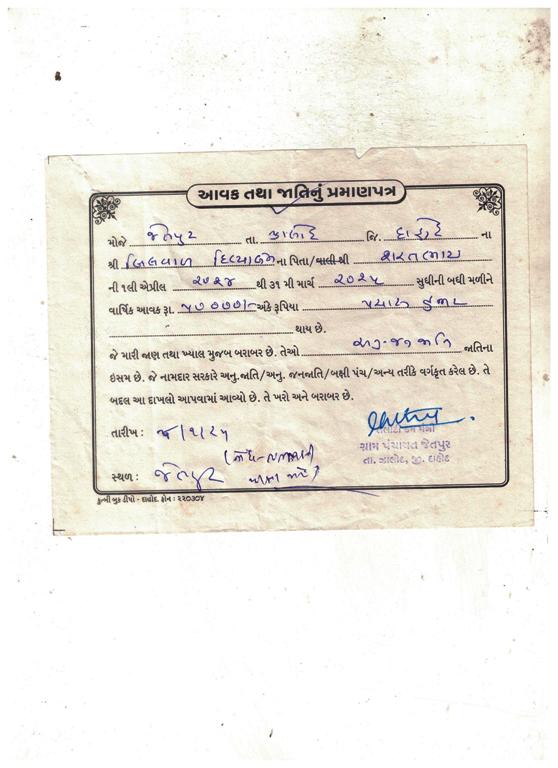 આવક તથા જાતિનું પ્રમાણપત્ર
મોજે જેતપુર તા. ઝાલોદ જિ. દાહોદ ના
શ્રી બિલવાળ દિવ્યાબેન ના પિતા/વાલી શ્રી ભરતભાઇ
ની ૧લી એપ્રીલ ૨૦૨૪ થી ૩૧ મી માર્ચ ૨૦૨૫ સુધીની બધી મળીને
વાર્ષિક આવક રૂા. ૫૦૦૦૦/- અંકે રૂપિયા પચાસ હજાર
થાય છે.
જે મારી જાણ તથા ખ્યાલ મુજબ બરાબર છે. તેઓ અનુ-જન જાતિ જાતિના
ઇસમ છે. જે નામદાર સરકારે અનુ.જાતિ/અનુ. જનજાતિ/બક્ષી પંચ/અન્ય તરીકે વર્ગકૃત કરેલ છે. તે
બદલ આ દાખલો આપવામાં આવ્યો છે. તે ખરો અને બરાબર છે.
તારીખ : /૧/૨૫
તલાટી કમ મંત્રી
ગ્રામ પંચાયત જેતપુર
તા. ઝાલોદ, જી. દાહોદ
સ્થળ : જેતપુર
બુક ડીપો - દાહોદ. ફોન : ૨૨૦૩૦૪